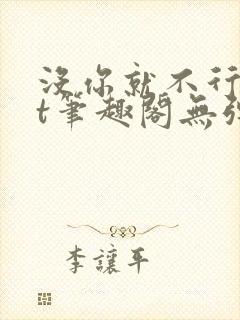 没你就不行
t筆趣閣無彈
李讓平